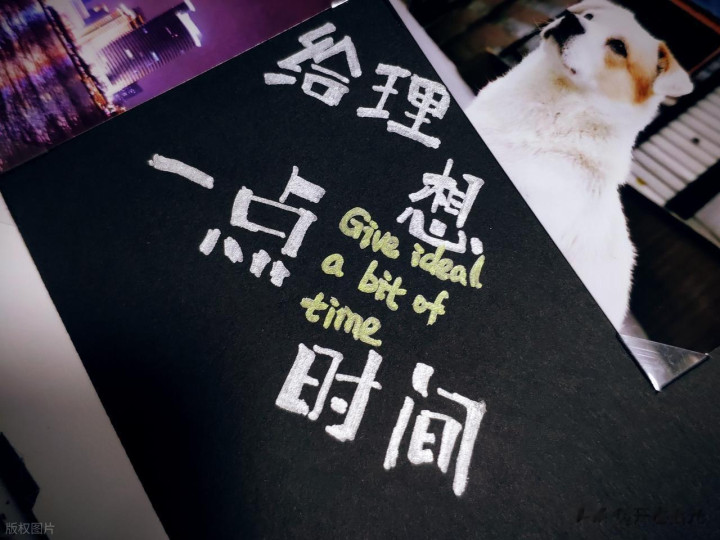 给理
想
一点
Give ideal
a bit of
time
时间
版权图片